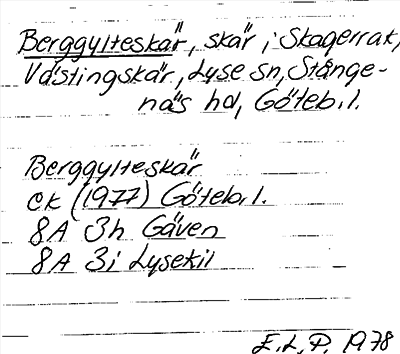 Berggylteskär, skär i Skagerrak,
Västingskär, Lyse sn, Stånge-
näs hd, Göteb. l.
Berggylteskär
EK (1977) Göteb. l.
8A 3h Gåven
8A 3i Lysekil
E.L.P. 1978